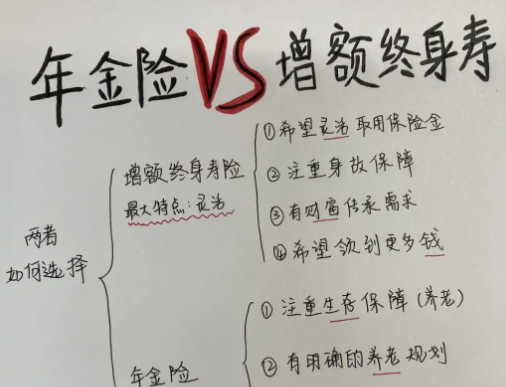 年金险VS增额终身寿
两者
如何选择
增额终身寿险
最大特点:灵活
①希望灵活取用保险金
②注重身故保障
③有财富传承需求
④希望领到更多钱
年金险
①注重生存保障(养老)
②有明确的养老规划